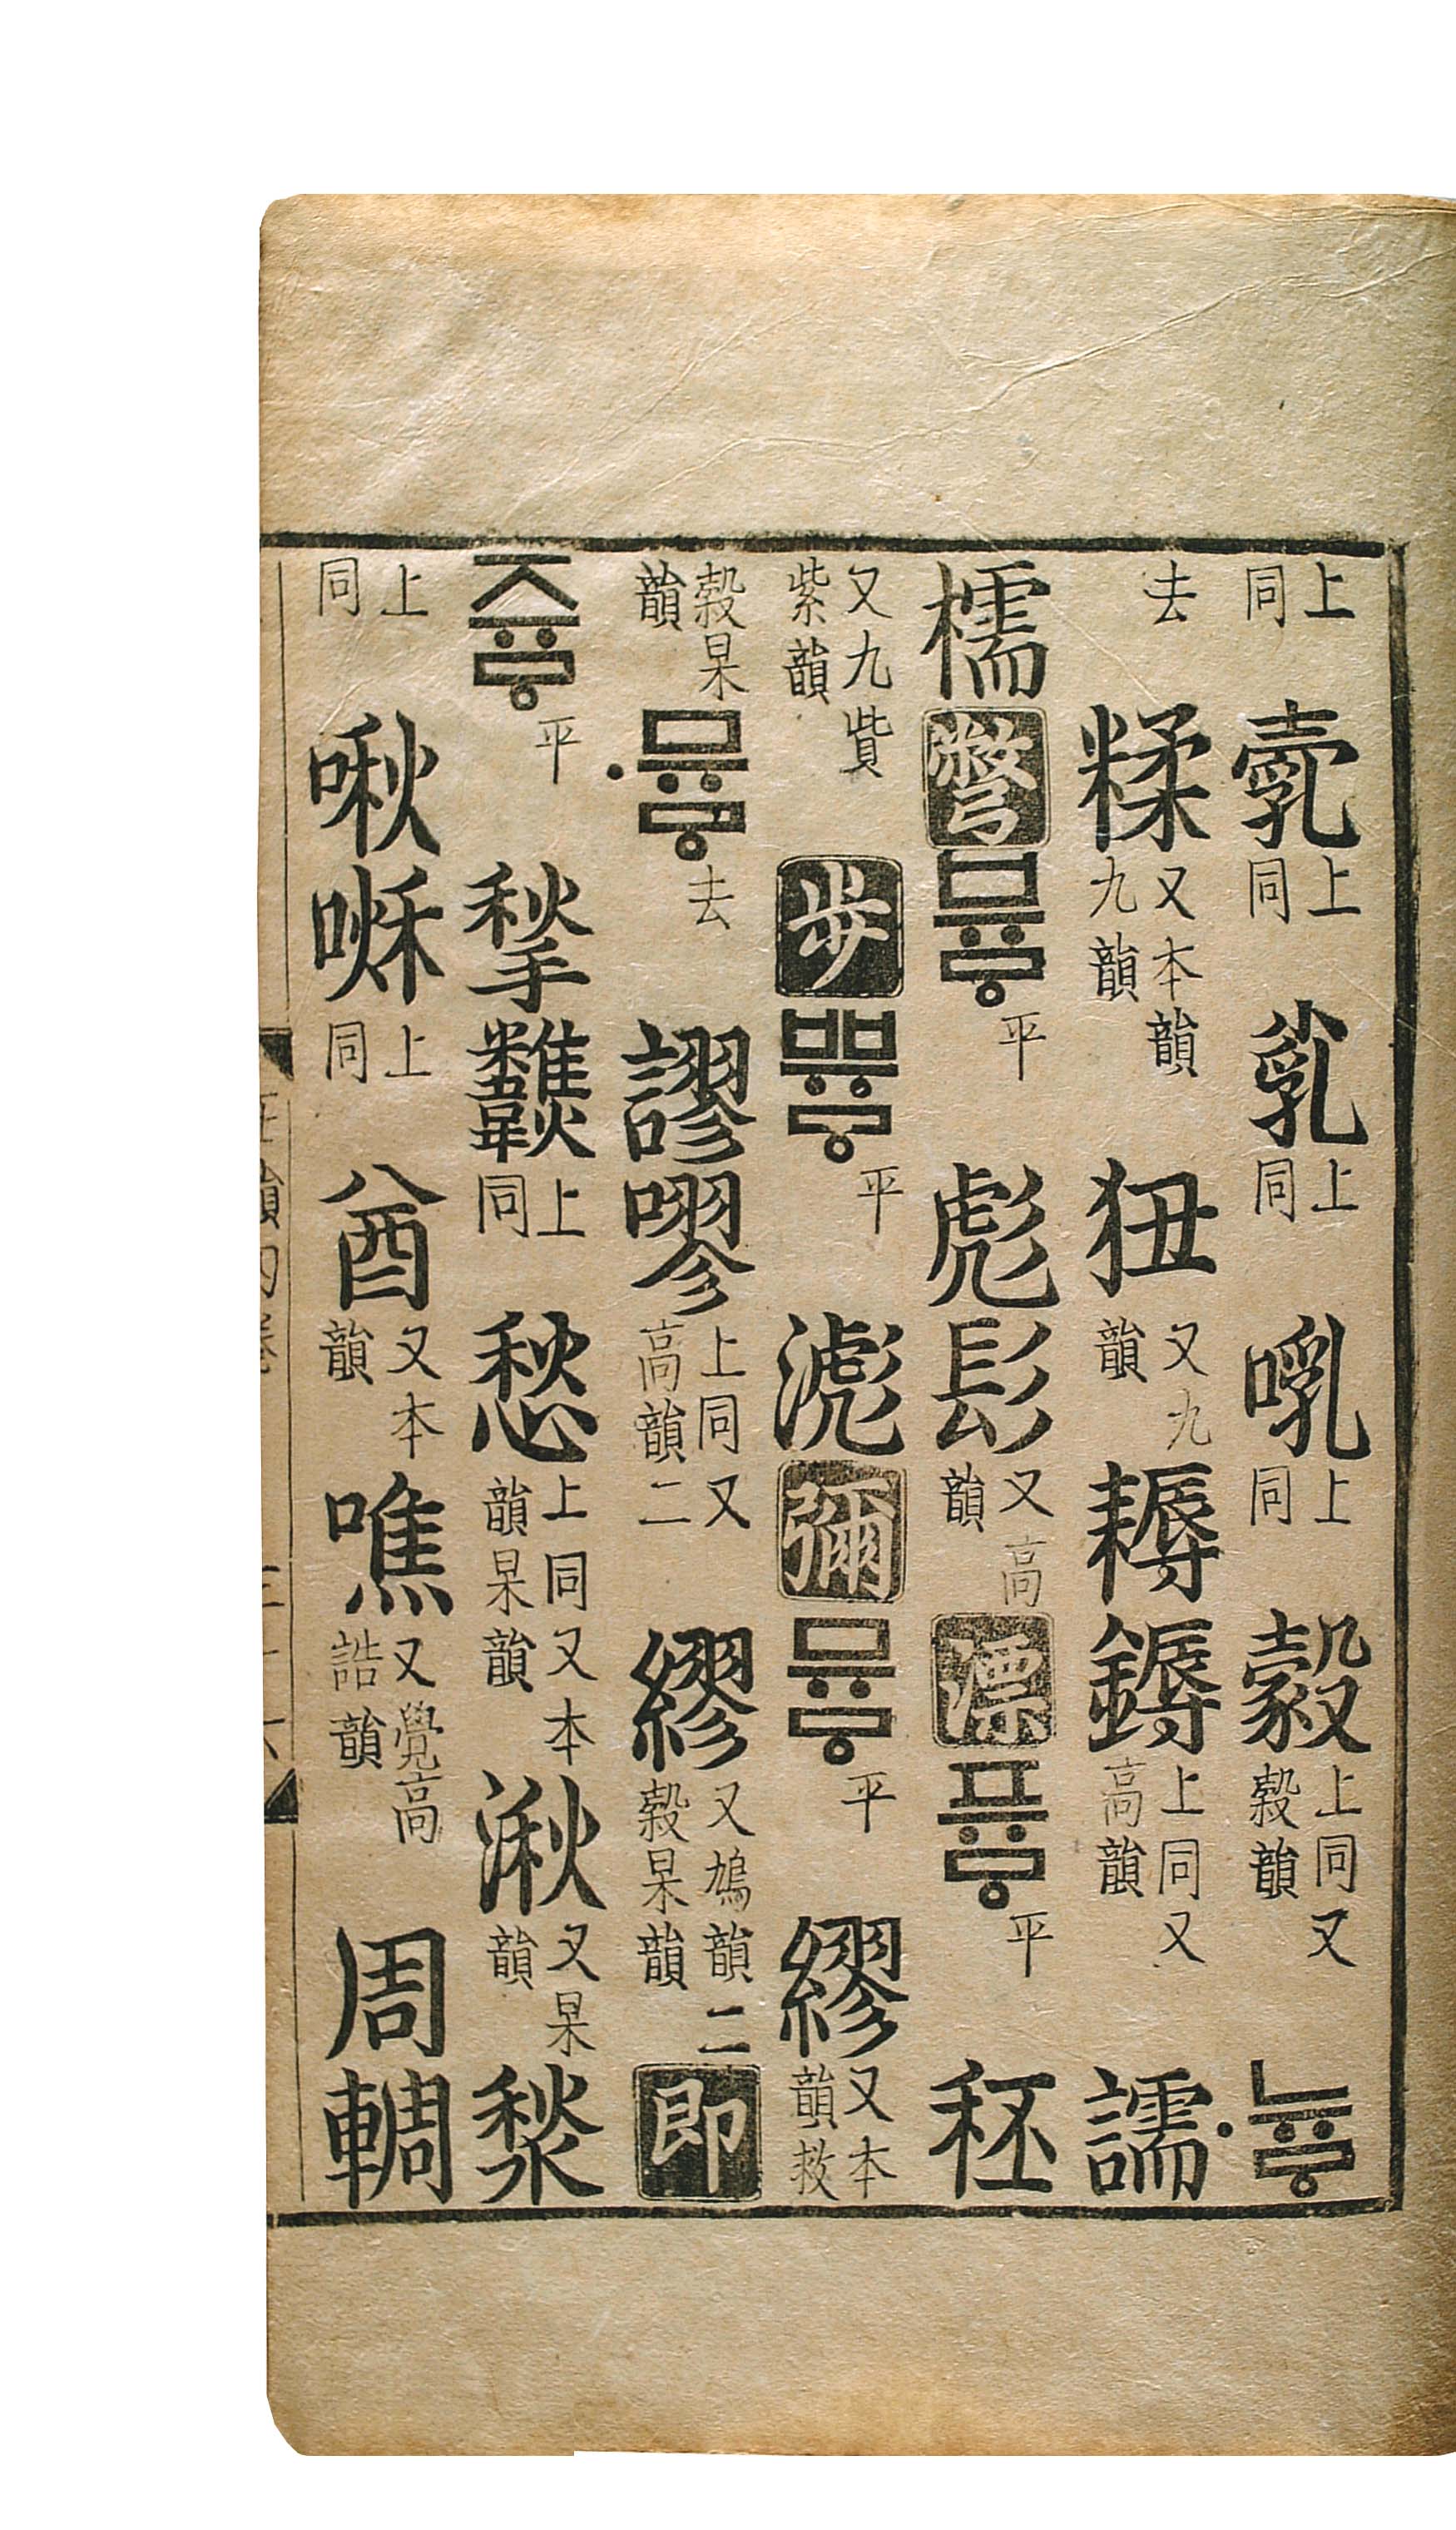 上同 上同 上同 上同 㝅上同又穀韻 뉴ᇢ〮
去 糅又本韻九韻 狃又九韻 耨 鎒上同又高韻 譳
檽 彆 뷰ᇢ平 彪 髟又高韻 漂 퓨ᇢ平 秠
又九貲紫韻 步 쀼ᇢ平 滮 彌 뮤ᇢ平 繆又本韻救
穀杲韻 뮤ᇢ〮去 謬 嘐上同又高韻二 繆又鳩韻二穀杲韻 即
쥬ᇢ平 揫 上同 愁上同又本韻杲韻 湫又杲韻 湬
上同 啾 上同 酋又本韻 噍又覺高誥韻 周 輖